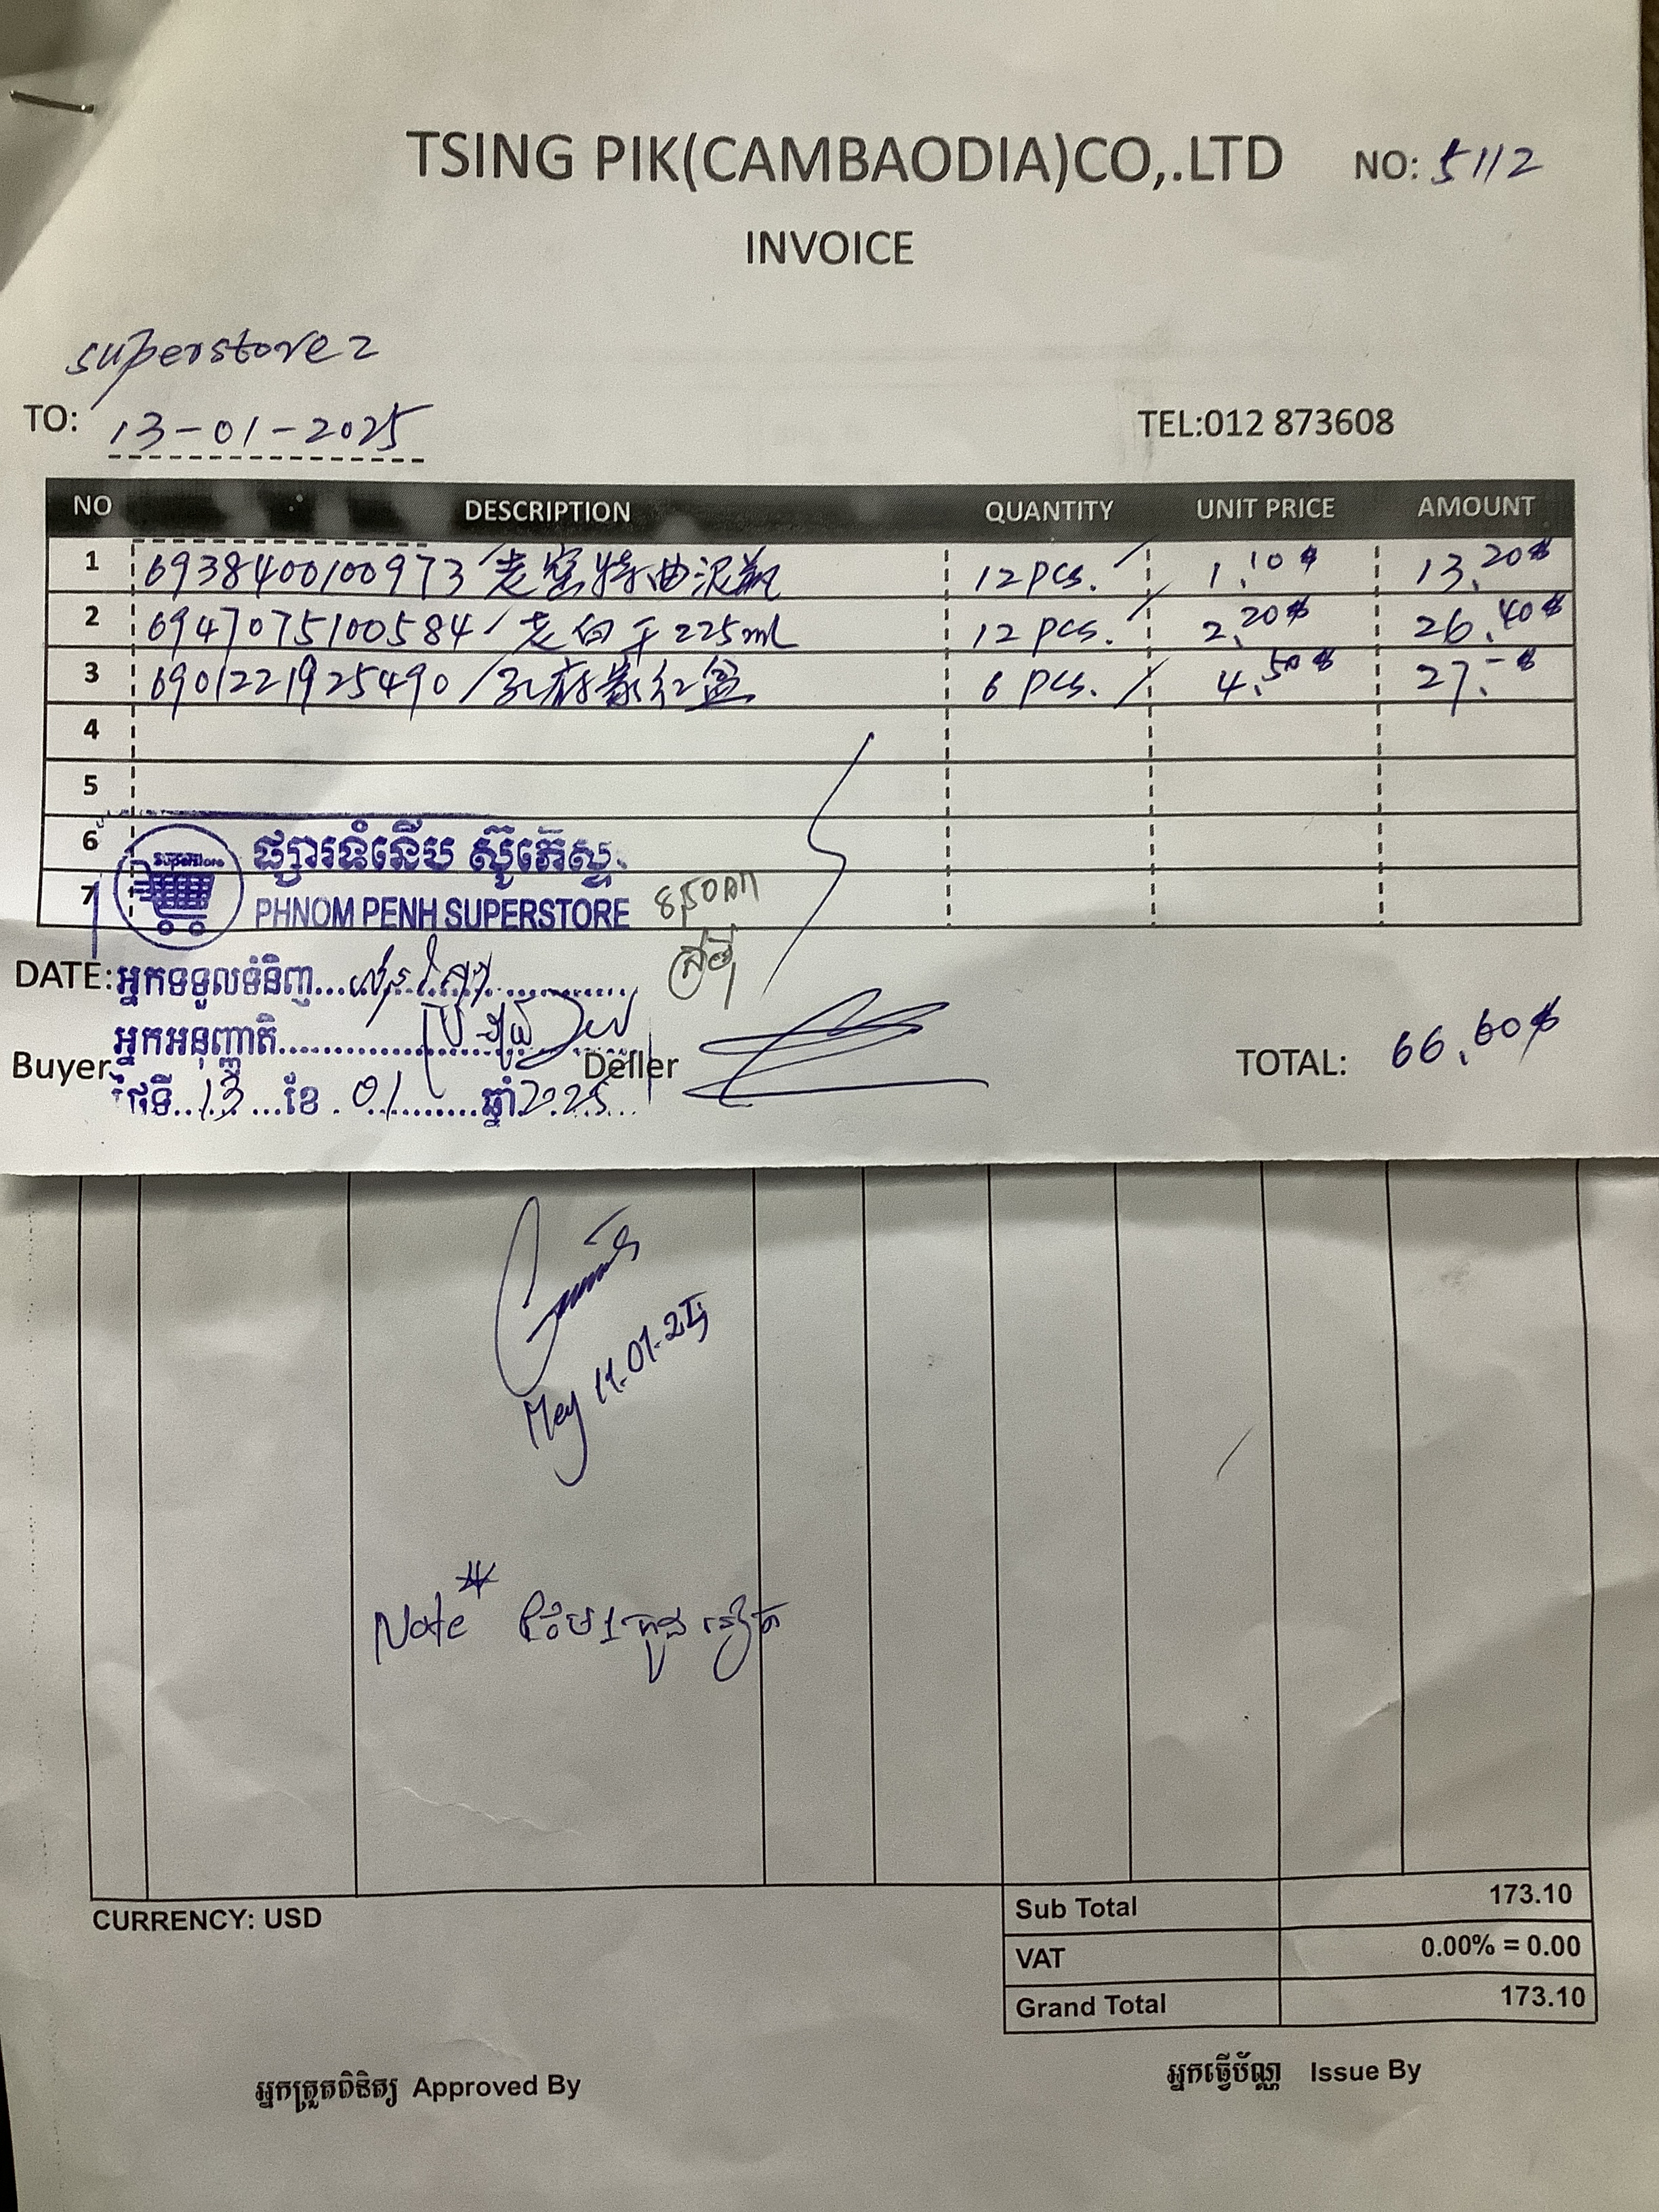 TSING PIK(CAMBAODIA)CO,.LTD NO: 5112
INVOICE
superstore 2
TO: 13-01-2025 TEL:012 873608
NO DESCRIPTION QUANTITY UNIT PRICE AMOUNT
1 6938400100973 / 老窖特曲沉瓶 12 pcs. 1.10$ 13.20$
2 6947075100584 / 老白干225ml 12 pcs. 2.20$ 26.40$
3 6901221925490 / 孔府家红盒 6 pcs. 4.50$ 27.-$
4
5
6 superstore ផ្សារទំនើប ស៊ូភើស្ទ័
7 PHNOM PENH SUPERSTORE
DATE: អ្នកទទួលទំនិញ
អ្នកអនុញ្ញាតិ
Buyer Deller TOTAL: 66.60$
ថ្ងៃទី 13 ខែ 01 ឆ្នាំ 2025
Mey 11.01.25
Note*
CURRENCY: USD
Sub Total 173.10
VAT 0.00% = 0.00
Grand Total 173.10
អ្នកត្រួតពិនិត្យ Approved By
អ្នកធ្វើប័ណ្ណ Issue By